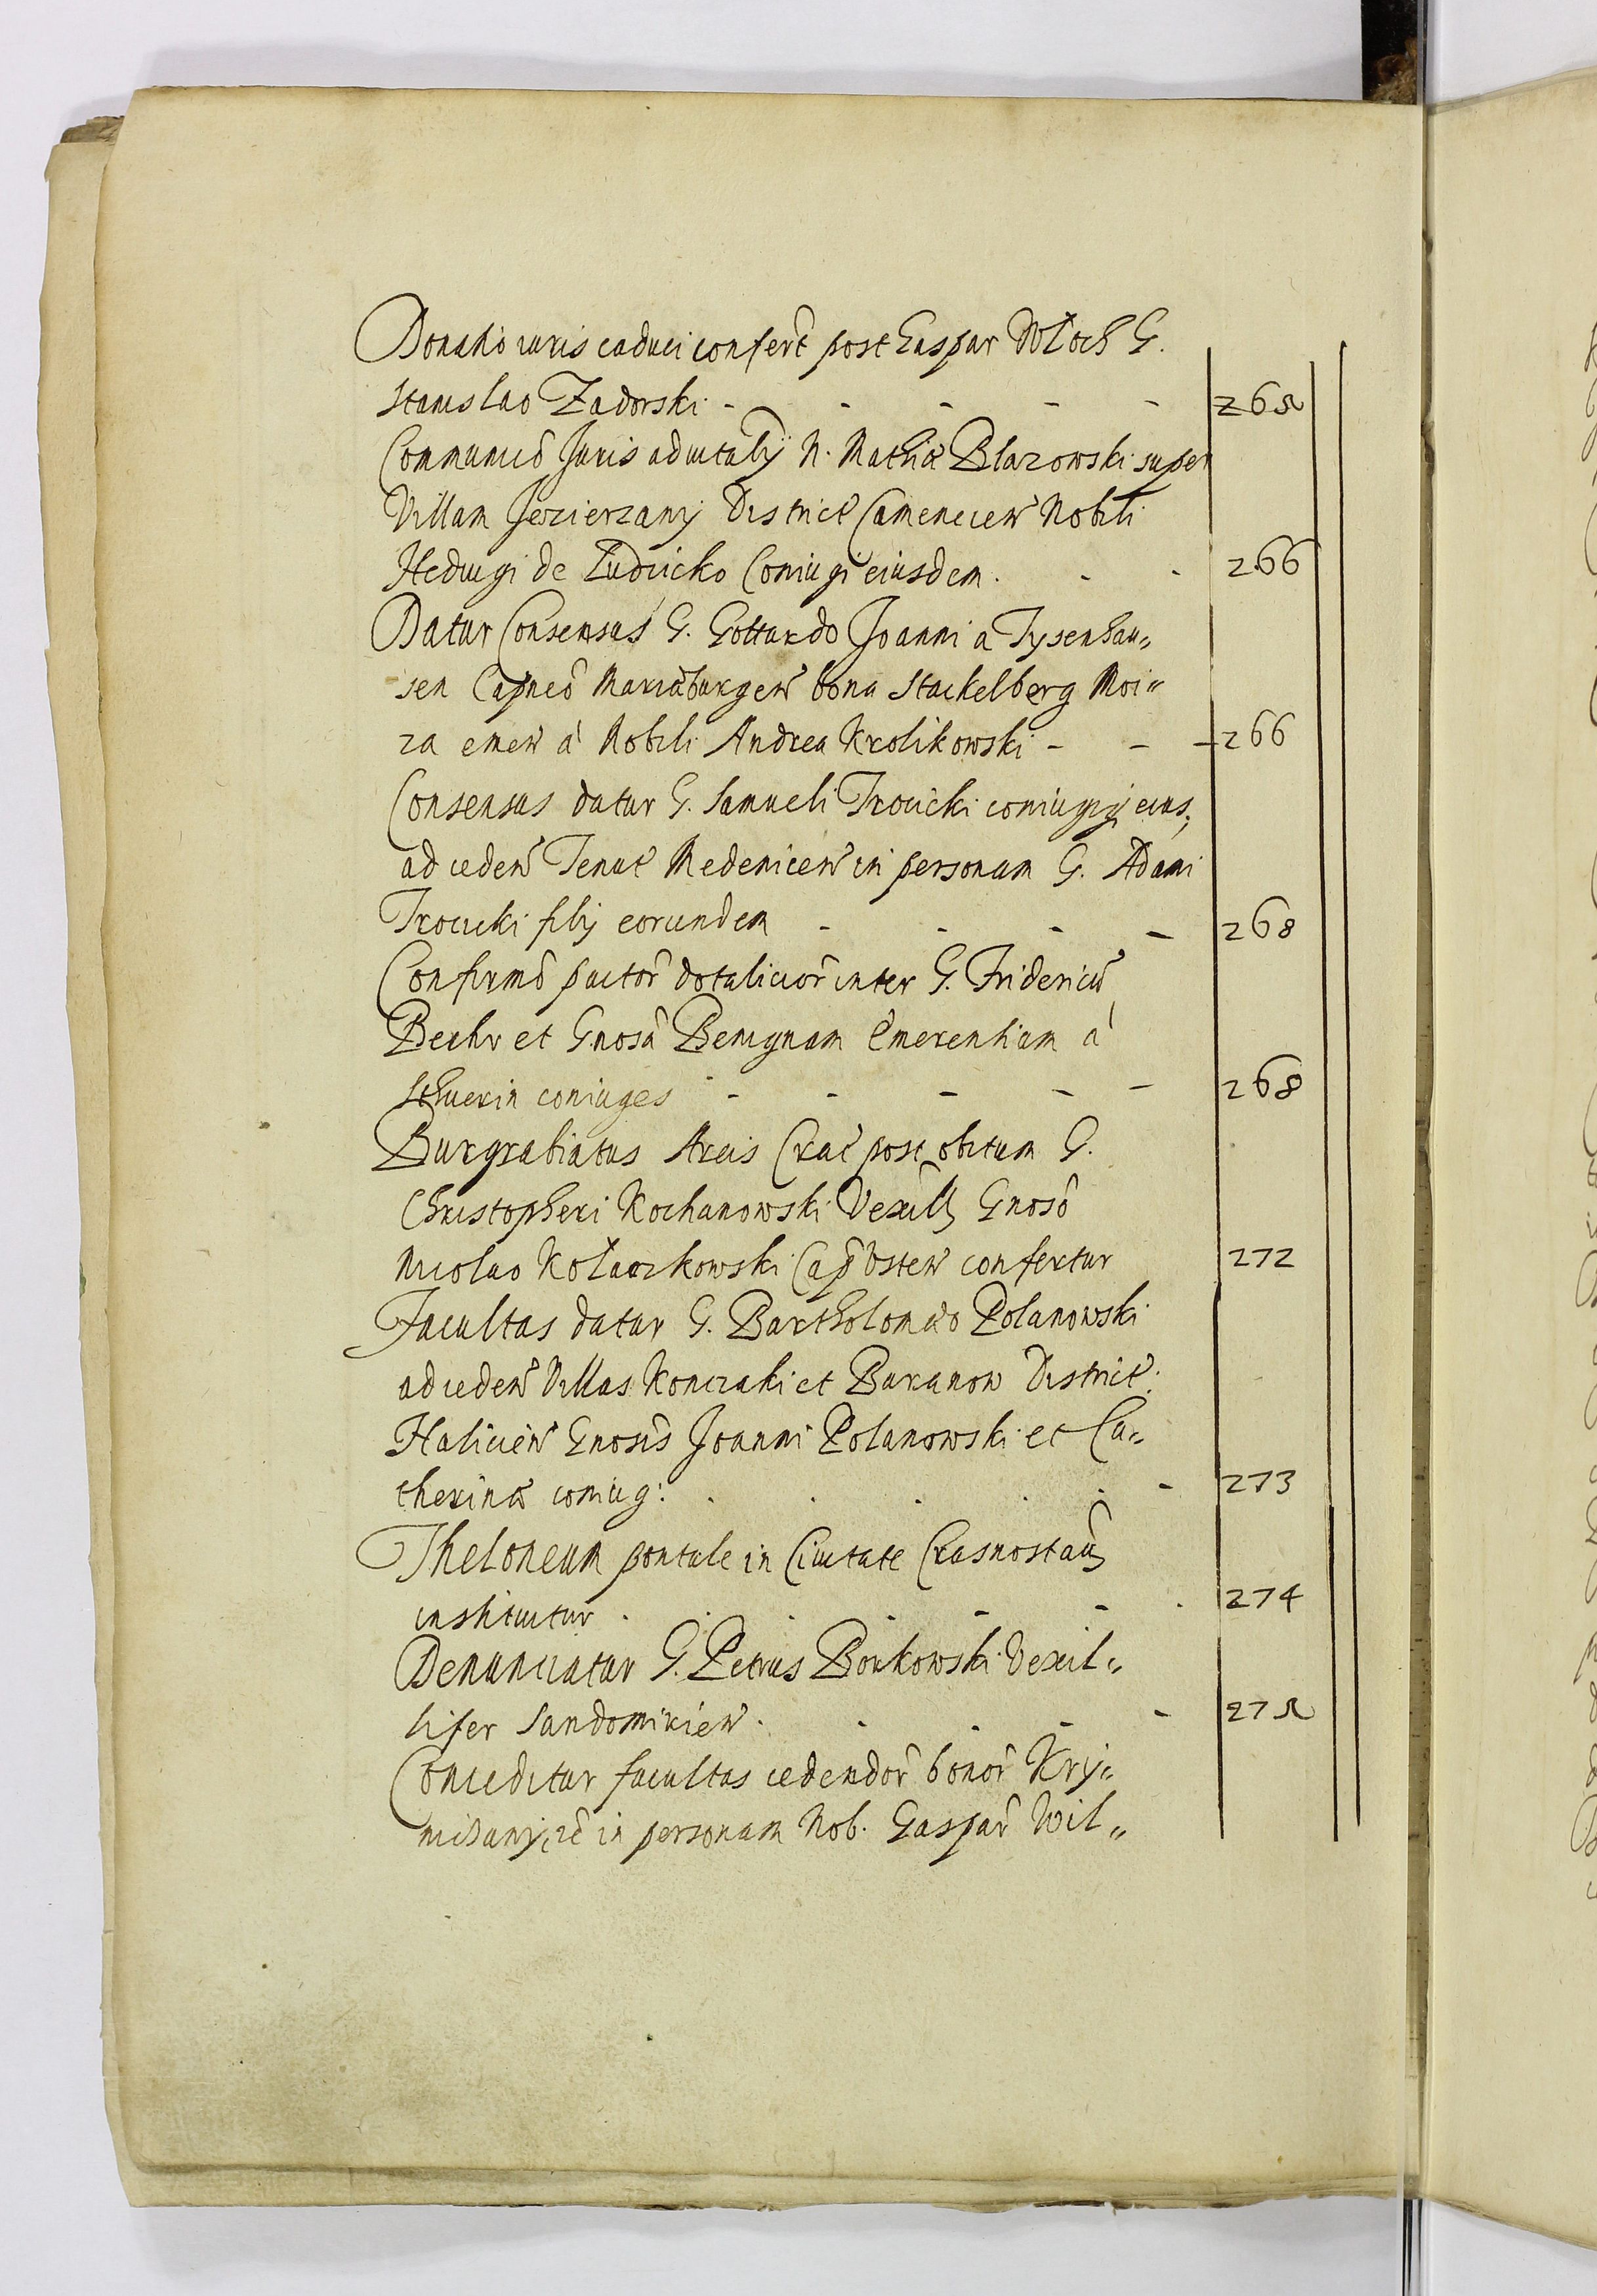 Donatio iuris caduci confert post Caspar Włoch G.
Stanislao Zadorski - - - - - 265
Communicô Juris aduitalij N. Mathiæ Blazowski super
Villam Jezierzany District Camenecen Nobili
Heduigi de Ludzicko Coniugi eiusdem. - - 266
Datur Consensus G. Gottardo Joanni a Tysenhau„
sen Capneô Mariæburgen bona Stackelberg Moi„
za emen à Nobili Andrea Krolikowski - - - 266
Consensus datur G. Samueli Trocicki coniugiqj eius,
ad ceden Tenut Medenicen in personam G. Adami
Trocicki filij eorundem - - - - 268
Confirmô pactor dotalicior inter G. Fridericu
Bechr et Gnosâ Benignam Emerentiam à
Schuerin coniuges - - - - - 268
Burgrabiatus Arcis Crac post obitum G.
Christopheri Kochanowski Vexill Gnosô
Nicolao Kołaczkowski Cap Osten confertur 272
Facultas datur G. Bartholomæo Polanowski
ad ceden Villas Konczaki et Baranow District:
Halicien Gnosis Joanni Polanowski et Ca„
therinæ coniug: . . . . . - 273
Theloneum pontale in Ciuitate Crasnostau
instituitur . . . . - - . 274
Denunciatur G. Petrus Borkowski Vexil„
lifer Sandomirien . - - - - 275
Conceditur facultas cedendor bonor Kry„
in personam Nob. Gaspar Wil„